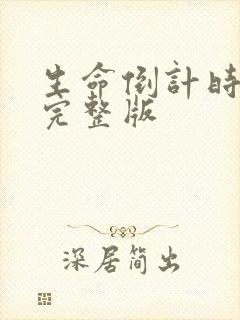 生命倒計時
完整版
深居簡出